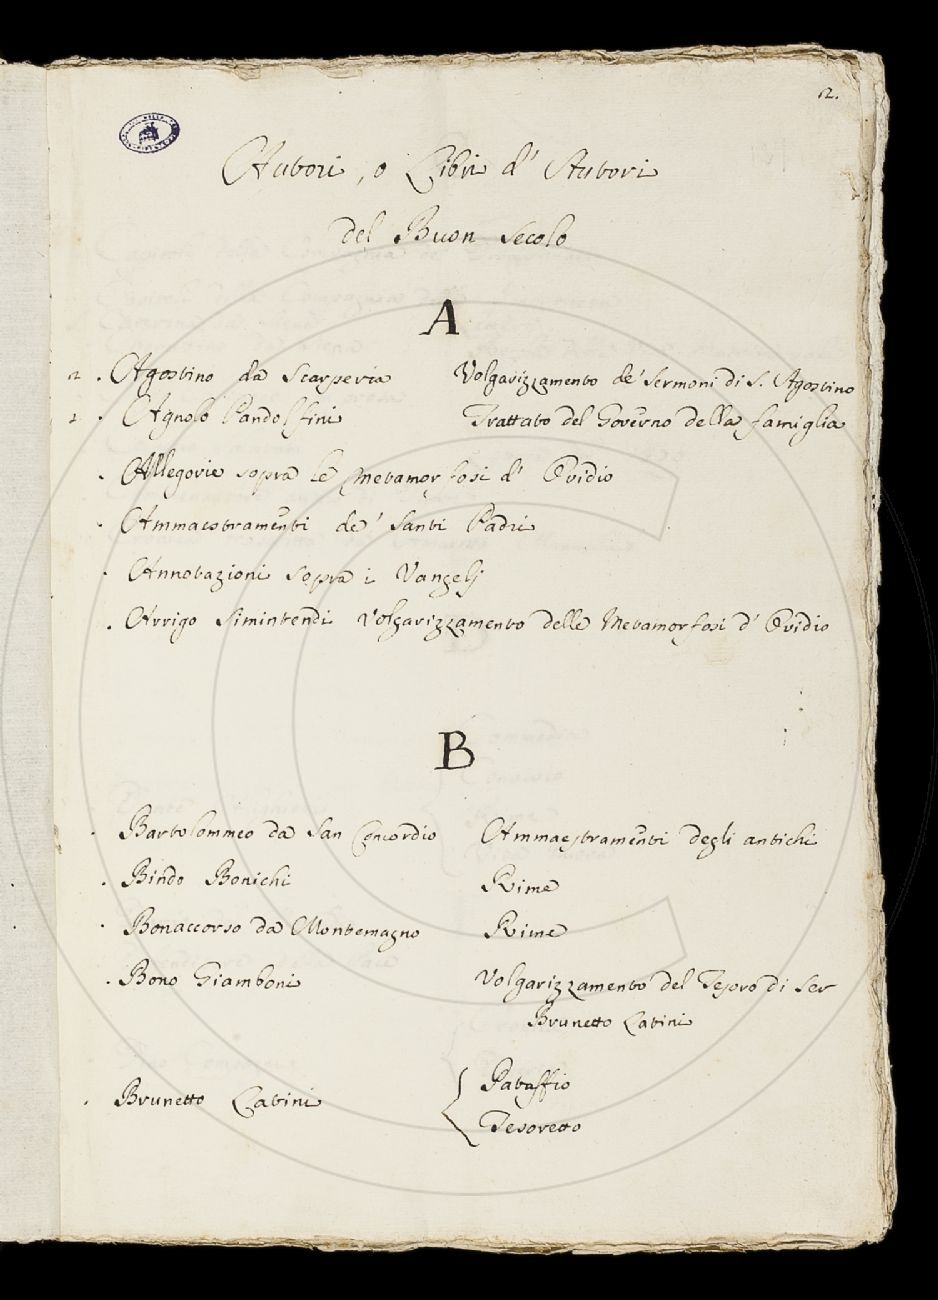 2.
Autori, o Libri d' Autori
del Buon Secolo
A
2 . Agostino da Scarperia Volgarizzamento de' Sermoni di S. Agostino
1 . Agnolo Pandolfini Trattato del Governo della famiglia
. Allegorie sopra le Metamorfosi d' Ovidio
. Ammaestramenti de' Santi Padri
. Annotazioni sopra i Vangelj
. Arrigo Simintendi Volgarizzamento delle Metamorfosi d' Ovidio
B
. Bartolommeo da San Concordio Ammaestramenti degli antichi
. Bindo Bonichi Rime
. Bonaccorso da Montemagno Rime
. Bono Giamboni Volgarizzamento del Tesoro di Ser
Brunetto Latini
. Brunetto Latini { Pataffio
Tesoretto